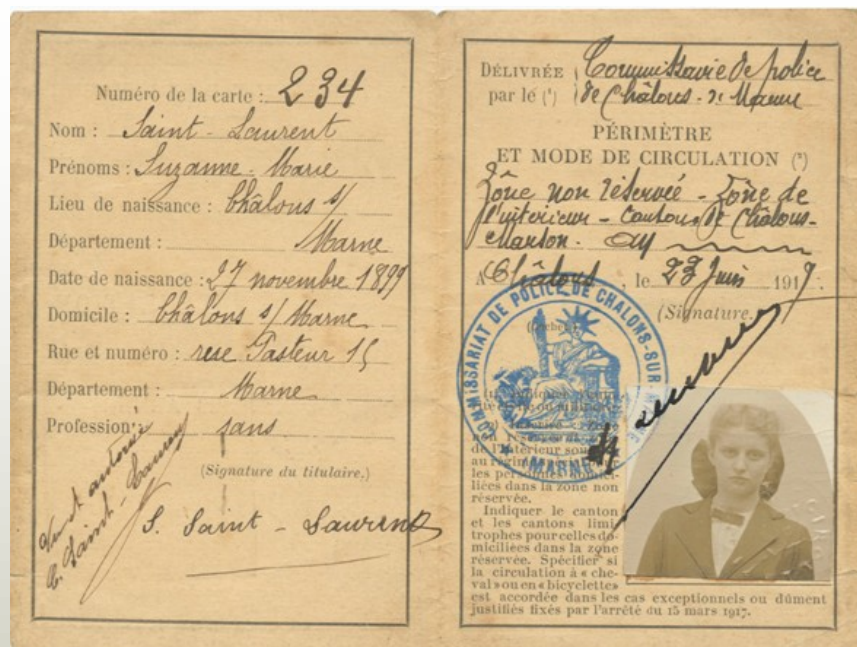 Numéro de la carte : 234
Nom : Saint-Laurent
Prénoms : Suzanne-Marie
Lieu de naissance : Châlons s/
Département : Marne
Date de naissance : 27 novembre 1899
Domicile : Châlons s/ Marne
Rue et numéro : rue Pasteur 15
Département : Marne
Profession : sans
(Signature du titulaire.)
S. Saint-Laurent
Vu et autorisé
Saint-Laurent
DÉLIVRÉE Commissaire de police
par le (1) de Châlons-s/ Marne
PÉRIMÈTRE
ET MODE DE CIRCULATION (2)
Zône non réservée - Zône de
l'intérieur - Cantons de Châlons-
Marson. Ay
A Châlons, le 23 Juin 1917.
(Signature.)
COMMISSARIAT DE POLICE DE CHALONS-SUR-MARNE
MARNE
(Cachet)
non réservée
de l'intérieur
les personnes
liées dans la zone non
réservée.
Indiquer le canton
et les cantons limi-
trophes pour celles do-
miciliées dans la zone
réservée. Spécifier si
la circulation à « che-
val » ou en « bicyclette »
est accordée dans les cas exceptionnels ou dûment
justifiés fixés par l'arrêté du 15 mars 1917.